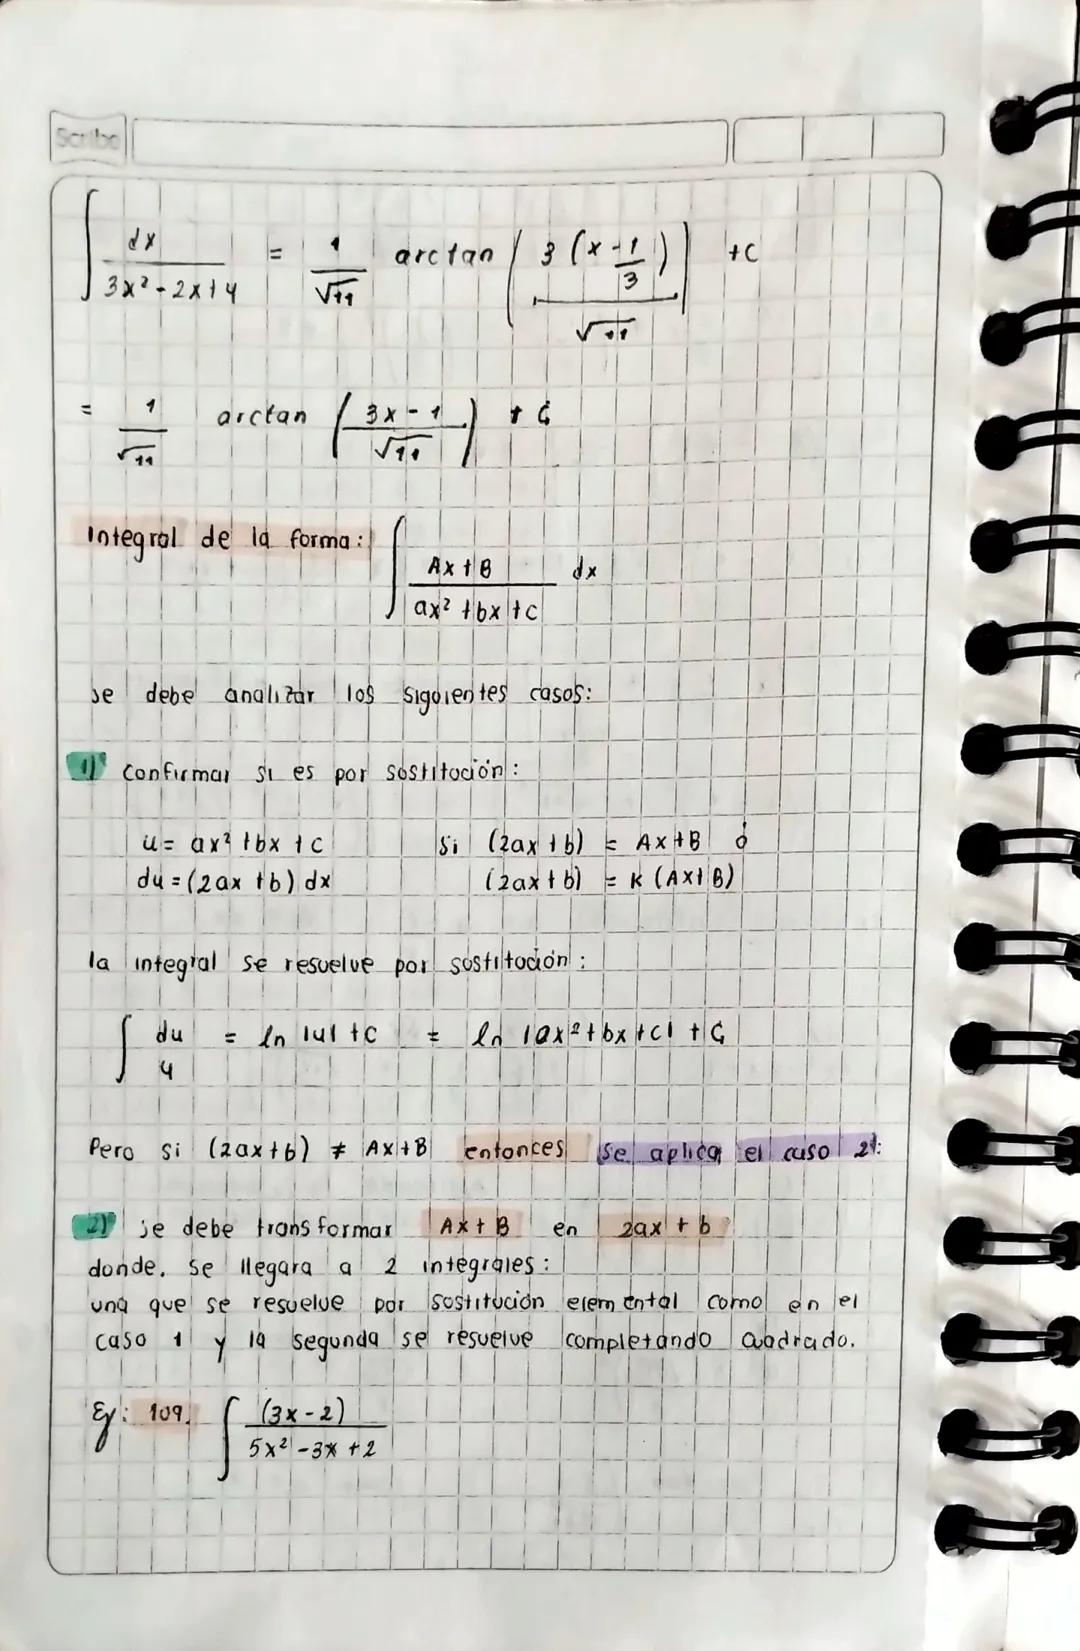 Scribe
∫ dx / 3x² - 2x + 4 = 1/√11 arctan ( 3 (x - 1/3) / √11 ) + C
= 1/√11 arctan ( 3x - 1 / √11 ) + C
Integral de la forma: ∫ Ax + B / ax² + bx + c dx
se debe analizar los siguientes casos:
1) Confirmar si es por sustitución:
u = ax² + bx + c Si (2ax + b) = Ax + B ó
du = (2ax + b) dx (2ax + b) = K (Ax + B)
la integral se resuelve por sustitución:
∫ du / u = ln |u| + c = ln |ax² + bx + c| + C
Pero si (2ax + b) ≠ Ax + B entonces se aplica el caso 2:
2) se debe transformar Ax + B en 2ax + b
donde. se llegara a 2 integrales:
una que se resuelve por sustitución elemental como en el
caso 1 y la segunda se resuelve completando cuadrado.
Ej: 109. ∫ (3x - 2) / 5x² - 3x + 2